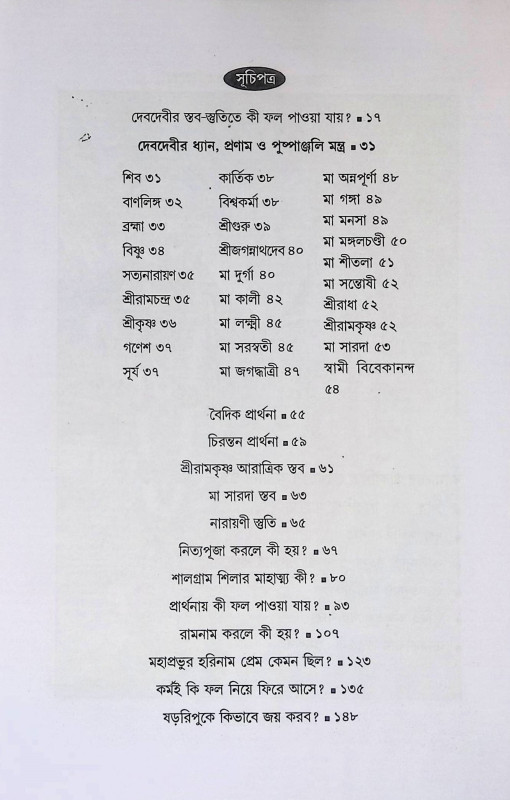 সূচিপত্র
দেবদেবীর স্তব-স্তুতিতে কী ফল পাওয়া যায়? ■ ১৭
দেবদেবীর ধ্যান, প্রণাম ও পুষ্পাঞ্জলি মন্ত্র ■ ৩১
শিব ৩১
বাণলিঙ্গ ৩২
ব্রহ্মা ৩৩
বিষ্ণু ৩৪
সত্যনারায়ণ ৩৫
শ্রীরামচন্দ্র ৩৫
শ্রীকৃষ্ণ ৩৬
গণেশ ৩৭
সূর্য ৩৭
কার্তিক ৩৮
বিশ্বকর্মা ৩৮
শ্রীগুরু ৩৯
শ্রীজগন্নাথদেব ৪০
মা দুর্গা ৪০
মা কালী ৪২
মা লক্ষ্মী ৪৫
মা সরস্বতী ৪৫
মা জগদ্ধাত্রী ৪৭
মা অন্নপূর্ণা ৪৮
মা গঙ্গা ৪৯
মা মনসা ৪৯
মা মঙ্গলচণ্ডী ৫০
মা শীতলা ৫১
মা সন্তোষী ৫২
শ্রীরাধা ৫২
শ্রীরামকৃষ্ণ ৫২
মা সারদা ৫৩
স্বামী বিবেকানন্দ
৫৪
বৈদিক প্রার্থনা ■ ৫৫
চিরন্তন প্রার্থনা ■ ৫৯
শ্রীরামকৃষ্ণ আরাত্রিক স্তব ■ ৬১
মা সারদা স্তব ■ ৬৩
নারায়ণী স্তুতি ■ ৬৫
নিত্যপূজা করলে কী হয়? ■ ৬৭
শালগ্রাম শিলার মাহাত্ম্য কী? ■ ৮০
প্রার্থনায় কী ফল পাওয়া যায়? ■ ৯৩
রামনাম করলে কী হয়? ■ ১০৭
মহাপ্রভুর হরিনাম প্রেম কেমন ছিল? ■ ১২৩
কর্মই কি ফল নিয়ে ফিরে আসে? ■ ১৩৫
ষড়রিপুকে কিভাবে জয় করব? ■ ১৪৮